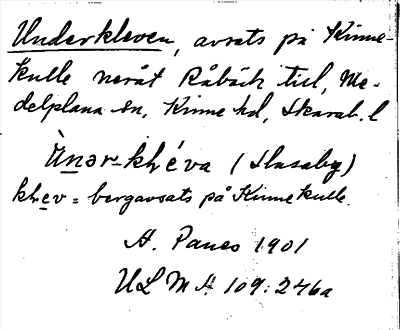 Underkleven, avsats på Kinne-
kulle neråt Råbäck till, Me-
delplana sn, Kinne hd, Skarab. l
Ùnər-klṿéva (Husaby)
klev = bergavsats på Kinnekulle.
A. Paues 1901
ULMA 109:246a